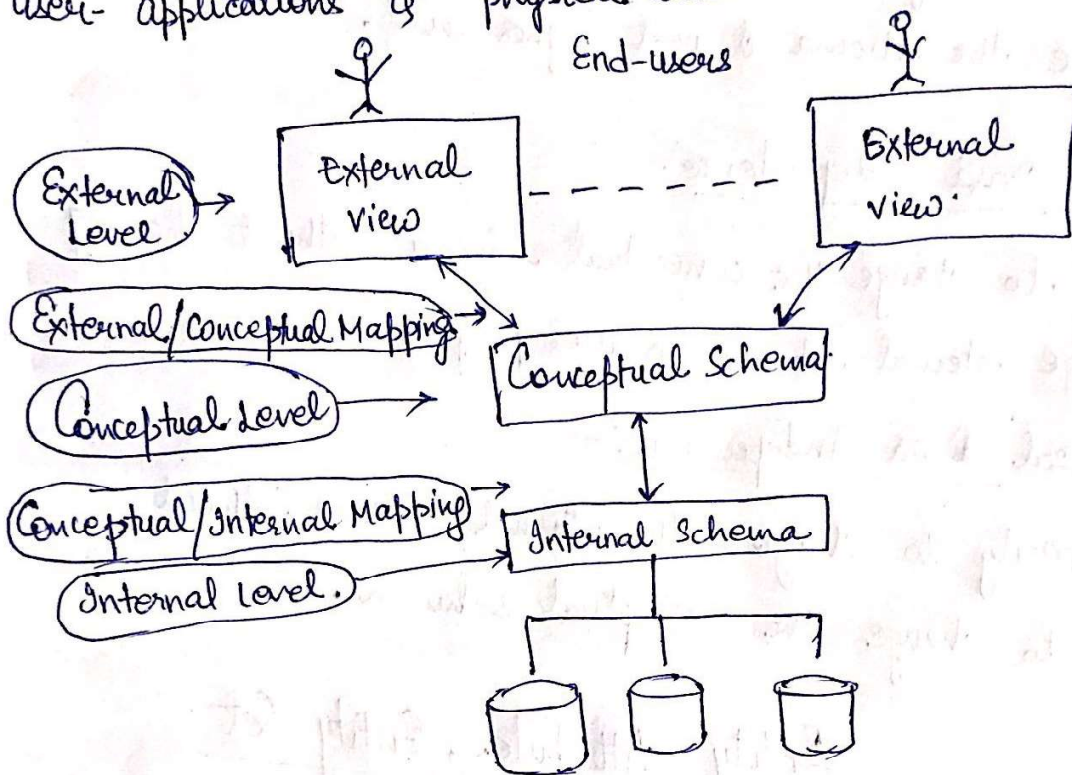 user- applications & physical
End-users
External view
External view.
External Level
External/Conceptual Mapping
Conceptual Schema.
Conceptual Level
Conceptual/Internal Mapping
Internal Schema
Internal Level.